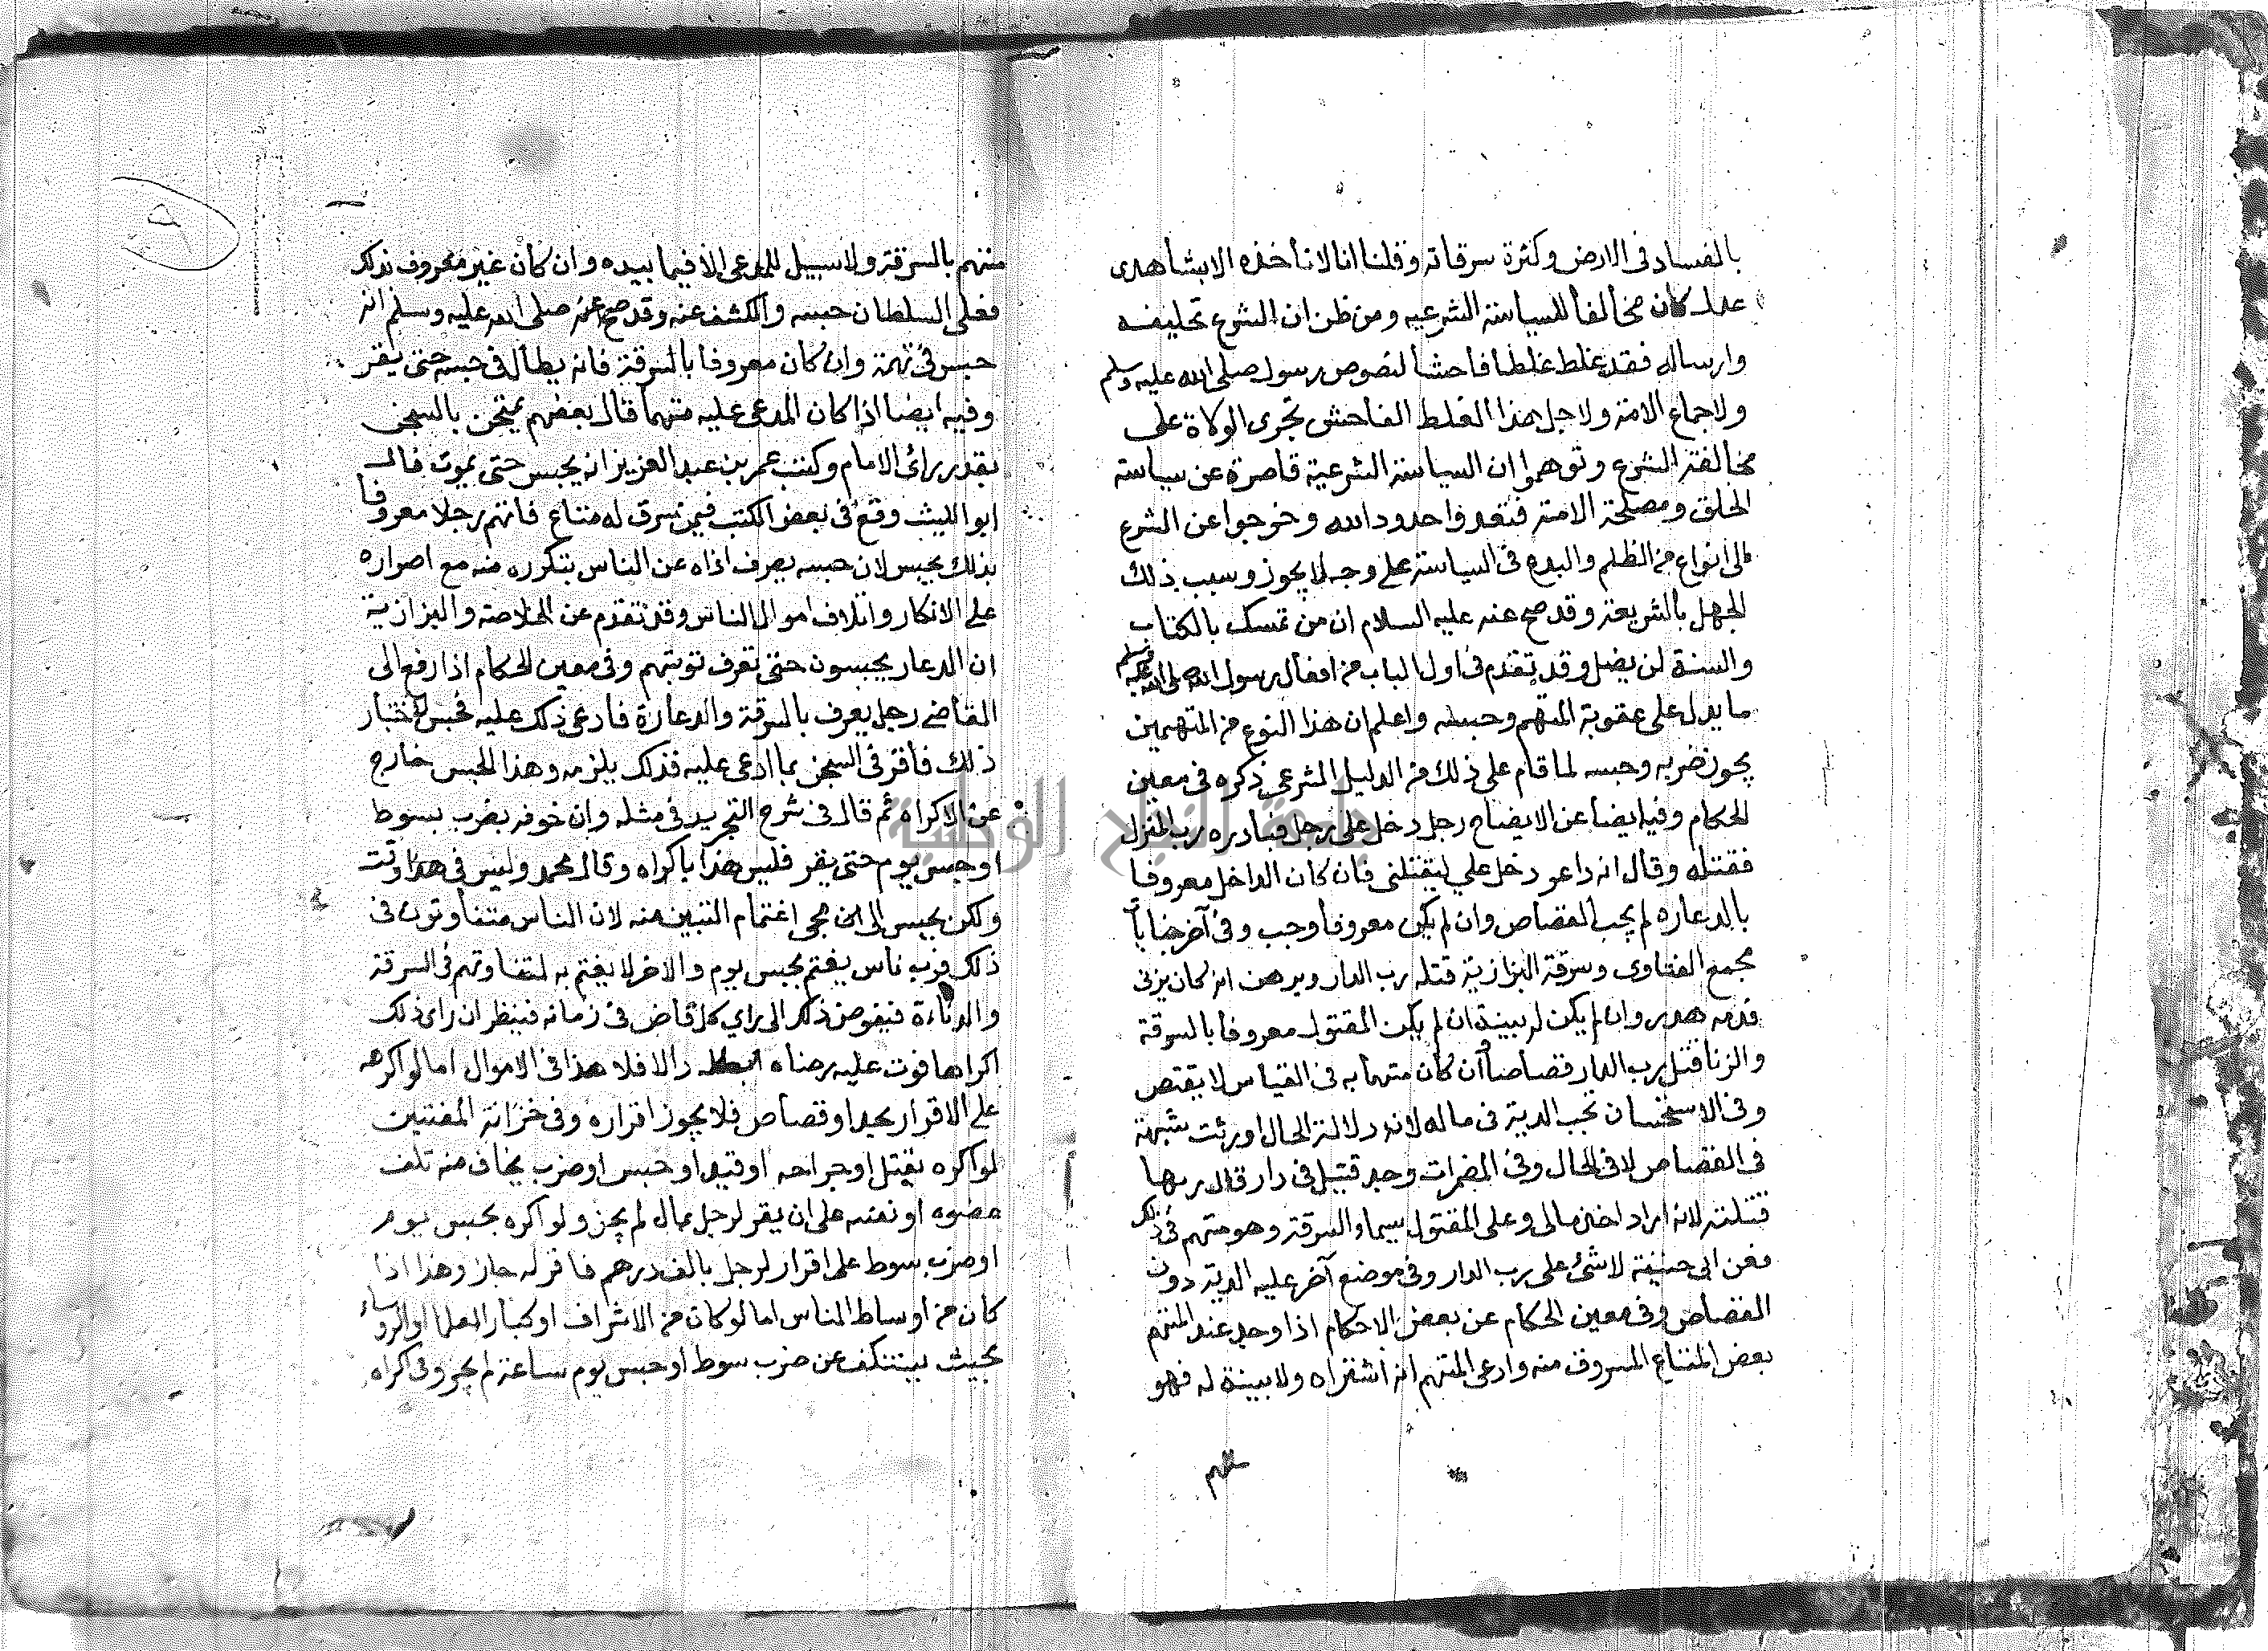 بالفساد فى الارض وكثرة سرقاته وقلنا انا لا نأخذه الا بشاهدى
عدل كان مخالفا للسياسة الشرعيه ومن ظن ان الشرع تحليفه
وارساله فقد غلط غلطا فاحشا لنصوص رسول صلى الله عليه وسلم
ولاجماع الامة ولاجل هذا الغلط الفاحش تجرى الولاة على
مخالفة الشرع وتوهموا ان السياسة الشرعية قاصرة عن سياسة
الخلق ومصلحة الامة فتعدوا حدود الله وخرجوا عن الشرع
الى انواع من الظلم والبدع فى السياسة على وجه لا يجوز وسبب ذلك
الجهل بالشريعة وقد صح عنه عليه السلام ان من تمسك بالكتاب
والسنة لن يضل وقد تقدم فى اول الباب من افعال رسول الله صلى الله عليه وسلم
ما يدل على عقوبة المتهم وحبسه واعلم ان هذا النوع من المتهمين
يجوز ضربه وحبسه لما قام على ذلك من الدليل الشرعى ذكره فى معين
الحكام وفيه ايضا عن الايضاح رجل دخل على رجل فبادره رب المنزل
فقتله وقال انه داعر دخل على ليقتلنى فان كان الداخل معروفا
بالدعاره لم يجب القصاص وان لم يكن معروفا وجب وفى آخر جنايات
مجمع الفتاوى وسرقة البزازية قتله رب الدار وبرهن انه كان يزنى
فدمه هدر وان لم يكن له بينة ان لم يكن المقتول معروفا بالسرقة
والزنا قتل رب الدار قصاصا وان كان متهما به فى القياس لا يقتص
وفى الاستحسان تجب الدية فى ماله لانه دلالة الحال اورثت شبهة
فى القصاص لا فى المال وفى المضمرات وجد قتيل فى دار قال ربها
قتلته لانه اراد اخذ مالى وعلى المقتول سيماء السرقة وهو متهم فى ذلك
فعن ابى حنيفة لا شئ على رب الدار وفى موضع آخر عليه الدية دون
القصاص وفى معين الحكام عن بعض الاحكام اذا وجد عند المتهم
بعض المتاع المسروق منه وادعى المتهم انه اشتراه ولا بينة له فهو
متهم بالسرقة ولا سبيل للمدعى الا فيما بيده وان كان غير معروف بذلك
فعلى السلطان حبسه والكشف عنه وقد صح عنه صلى الله عليه وسلم انه
حبس فى تهمة وان كان معروفا بالسرقة فانه يطال فى حبسه حتى يقر
وفيه ايضا اذا كان المدعى عليه متهما قال بعضهم يمتحن بالسجن
بقدر رأى الامام وكتب عمر بن عبد العزيز انه يحبس حتى يموت قال
ابو الليث وقع فى بعض الكتب فيمن سرق له متاع فاتهم رجلا معروفا
بذلك يحبس لان حبسه يصرف اذاه عن الناس بتكرره منه مع اصراره
على الانكار واتلاف اموال الناس وقد تقدم عن الخلاصة والبزازية
ان الدعار يحبسون حتى تعرف توبتهم وفى معين الحكام اذا رفع الى
القاضى رجل يعرف بالسرقة والدعارة فادعى ذلك عليه فحبس لاختبار
ذلك فأقر فى السجن بما ادعى عليه فذلك يلزمه وهذا الحبس خارج
عن الاكراه ثم قال فى شرح التجريد فى مثله وان خوفه بضرب بسوط
او حبس يوم حتى يقر فليس هذا باكراه وقال محمد وليس فى هذا وقت
ولكن يحبس الى ان يجى اغتمام التبين منه لان الناس متفاوتون فى
ذلك فرب ناس يغتم بحبس يوم والاخر لا يغتم به لتفاوتهم فى السرقة
والدناءة فنفوض ذلك الى راي كل قاض فى زمانه فينظر ان راى ذلك
اكراها فوت عليه رضاه والا فلا هذا فى الاموال اما لو اكره
على الاقرار بحد او قصاص فلا يجوز اقراره وفى خزانة المفتيين
لو اكره بقتل او جراحه او قيد او حبس او ضرب يخاف منه تلف
عضوه او نفسه على ان يقر لرجل بمال لم يجز ولو اكره بحبس يوم
او ضرب بسوط على اقرار لرجل بالف درهم فاقر له جاز وهذا اذا
كان من اوساط الناس اما لو كان من الاشراف او كبار العلما او الروساء
بحيث يستنكف عن ضرب سوط او حبس يوم ساعة لم يجز وفى اكراه
متهم
جامعة النجاح الوطنية